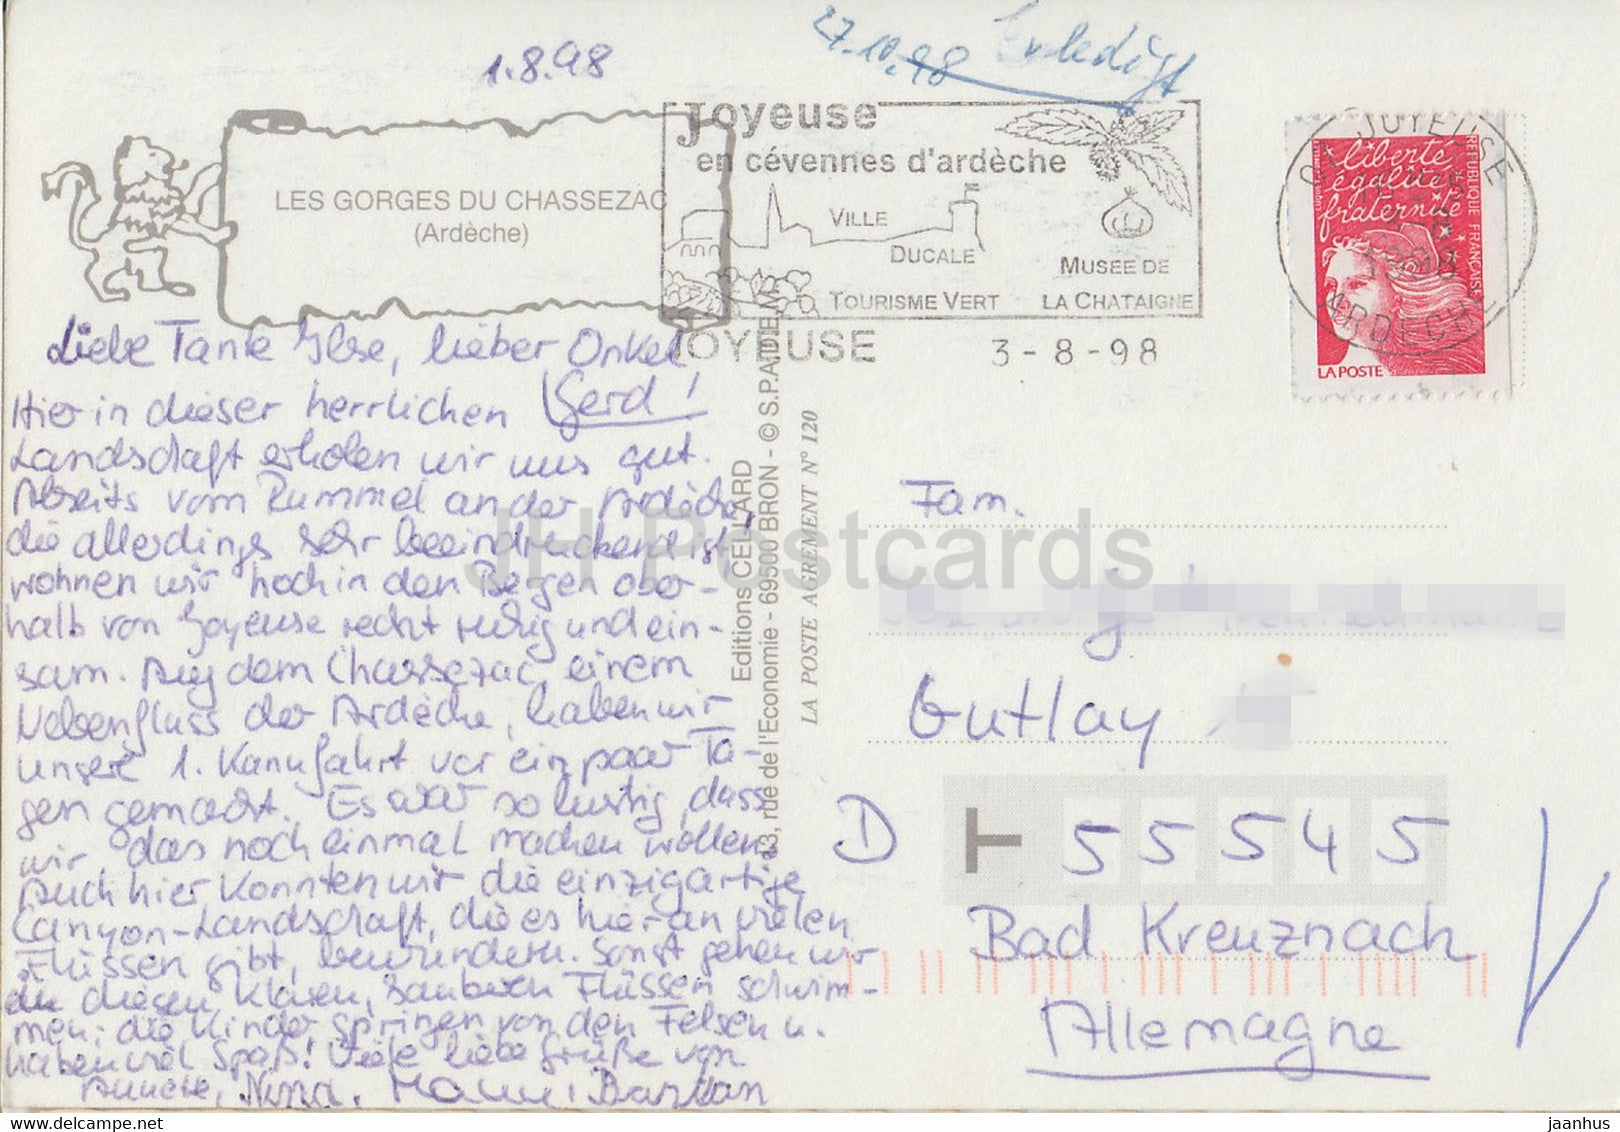 1.8.98
27.10.98 Erledigt
LES GORGES DU CHASSEZAC
(Ardèche)
Joyeuse
en cévennes d'ardèche
VILLE
DUCALE
TOURISME VERT
MUSEE DE
LA CHATAIGNE
JOYEUSE
3-8-98
JOYEUSE
ARDECHE
liberté
égalité
fraternité
RÉPUBLIQUE FRANÇAISE
LA POSTE
Liebe Tante Ilse, lieber Onkel
Gerd!
Hier in dieser herrlichen
Landschaft erholen wir uns gut.
Abseits vom Rummel an der Ardèche,
die allerdings sehr beeindruckend ist,
wohnen wir hoch in den Bergen ober-
halb von Joyeuse recht ruhig und ein-
sam. Auf dem Chassezac, einem
Nebenfluss der Ardèche, haben wir
unsere 1. Kanufahrt vor ein paar Ta-
gen gemacht. Es war so lustig, dass
wir das noch einmal machen wollen.
Auch hier konnten wir die einzigartige
Canyon-Landschaft, die es hier an vielen
Flüssen gibt, bewundern. Sonst gehen wir
in diesen klaren, sauberen Flüssen schwim-
men; die Kinder springen von den Felsen u.
haben viel Spaß! Viele liebe Grüße von
Annette, Nina,
Editions CELLARD
13, rue de l'Economie - 69500 BRON - © S.P.A.D.E.M.
LA POSTE AGREMENT N° 120
Fam.
Gutlay
D 55545
Bad Kreuznach
Allemagne
JH Postcards
delcampe.net
jaanhus